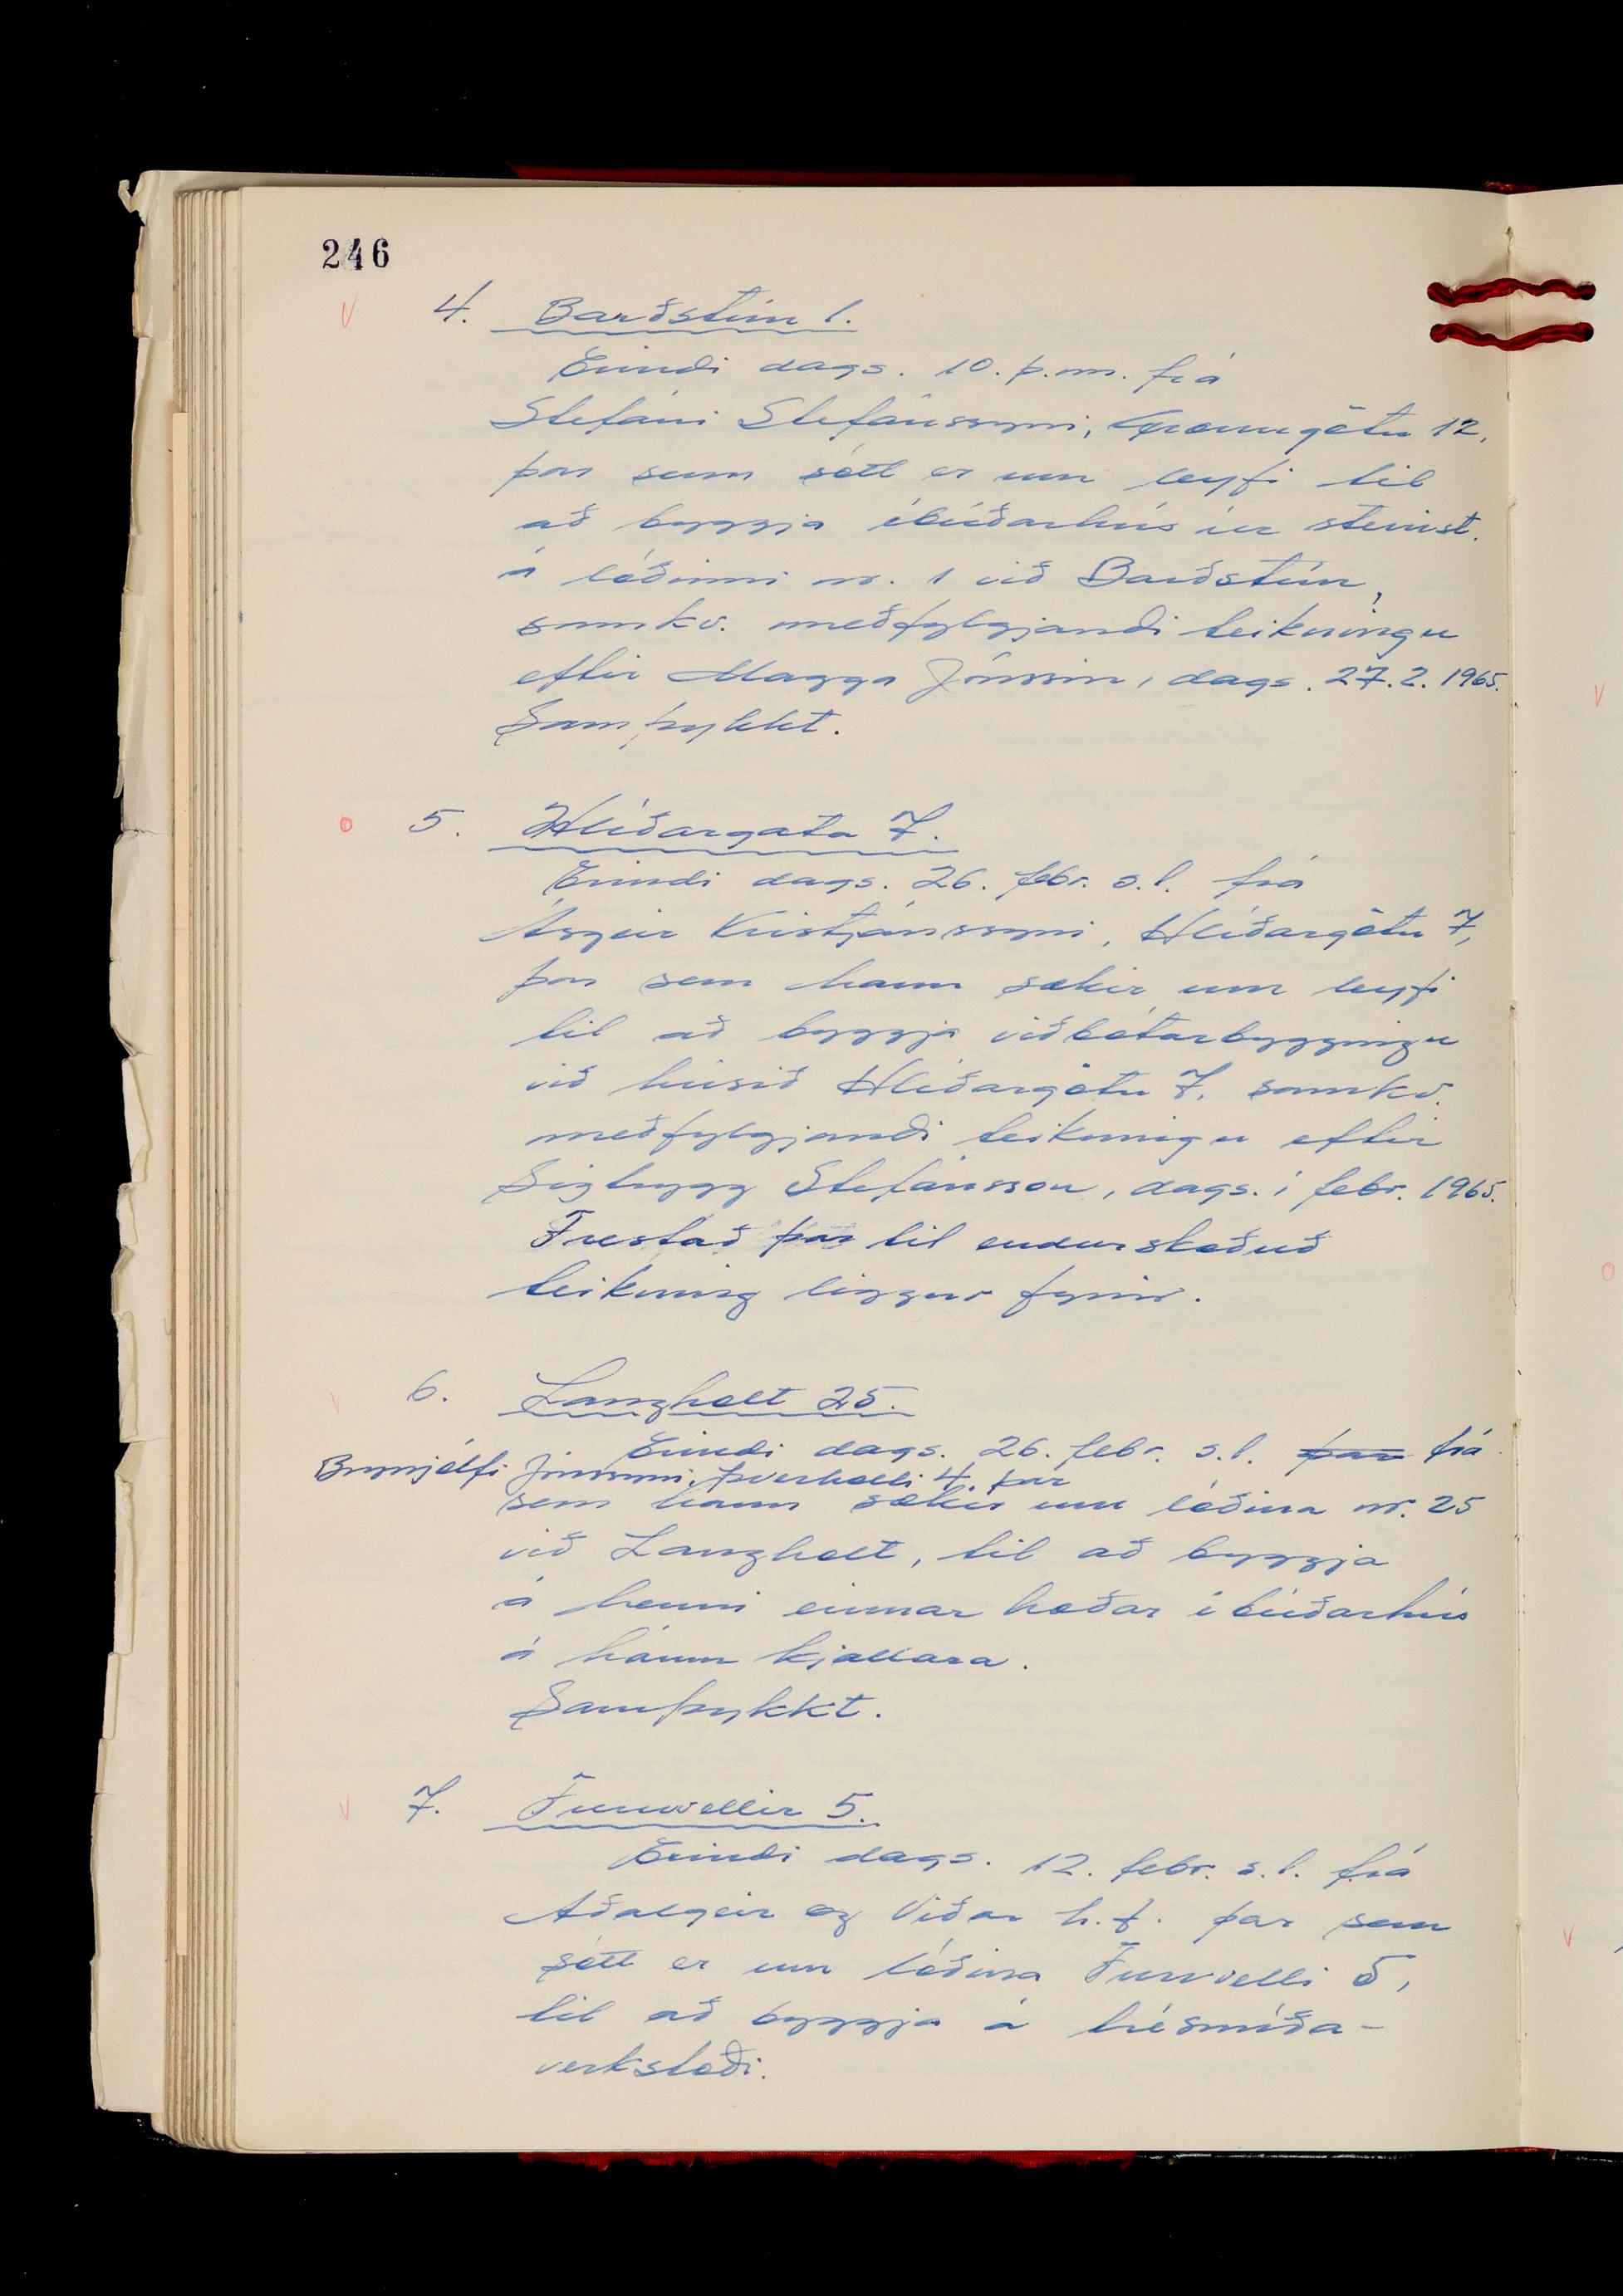 246
4. Barðstún 1.
Erindi dags. 10. þ.m. frá
Stefáni Stefánssyni, Ægisgötu 12,
þar sem sótt er um leyfi til
að byggja íbúðarhús úr steinst.
á lóðinni nr. 1 við Barðstún,
samkv. meðfylgjandi teikningu
eftir Magga Jónsson, dags. 27.2. 1965.
Samþykkt.
5. Hlíðargata 7.
Erindi dags. 26. febr. s.l. frá
Ásgeir Kristjánssyni, Hlíðargötu 7,
þar sem hann sækir um leyfi
til að byggja viðbótarbyggingu
við húsið Hlíðargötu 7, samkv.
meðfylgjandi teikningu eftir
Sigtrygg Stefánsson, dags. í febr. 1965.
Frestað þar til endurskoðuð
teikning liggur fyrir.
6. Langholt 25.
Erindi dags. 26. febr. s.l. þar frá
Brynjólfi Jónssyni, Þverholti 4, þar
sem hann sækir um lóðina nr. 25
við Langholt, til að byggja
á henni einnar hæðar íbúðarhús
á háum kjallara.
Samþykkt.
7. Furuvellir 5.
Erindi dags. 12. febr. s.l. frá
Aðalgeir og Viðar h.f. þar sem
sótt er um lóðina Furuvelli 5,
til að byggja á trésmíða-
verkstæði.